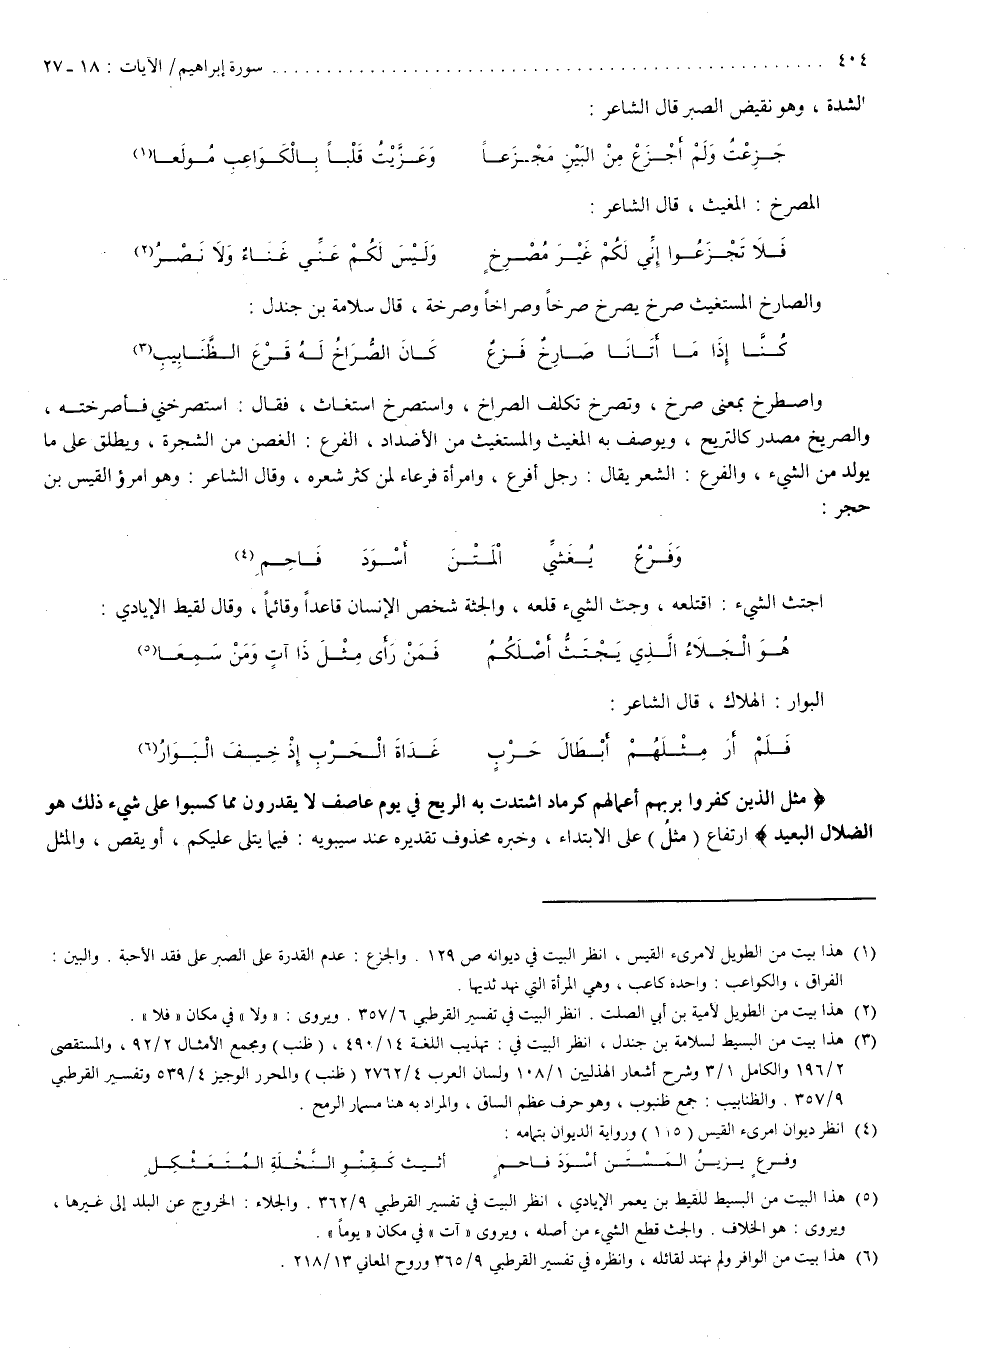 ٤٠٤ ........................................ سورة إبراهيم/ الآيات : ١٨ ـ ٢٧
الشدة ، وهو نقيض الصبر قال الشاعر :
جَـزِعْتُ وَلَمْ أَجْـزَعْ مِنَ البَيْنِ مَجْـزَعـاً وَعَـزَّيْتُ قَلْبـاً بِـالْكَـوَاعِبِ مُـولَعـا(١)
المصرخ : المغيث ، قال الشاعر :
فَـلَا تَجْـزَعُـوا إِنِّي لَكُمْ غَيْـرَ مُصْـرِخٍ وَلَيْسَ لَكُمْ عَنِّي غَنَـاءٌ وَلَا نَصْـرُ(٢)
والصارخ المستغيث صرخ يصرخ صرخاً وصراخاً وصرخة ، قال سلامة بن جندل :
كُـنَّـا إِذَا مَـا أَتَـانَـا صَـارِخٌ فَـزِعٌ كَـانَ الصُّـرَاخُ لَـهُ قَـرْعَ الـظَّنَـابِيبِ(٣)
واصطرخ بمعنى صرخ ، وتصرخ تكلف الصراخ ، واستصرخ استغاث ، فقال : استصرخني فـأصرختـه ،
والصريخ مصدر كالتريح ، ويوصف به المغيث والمستغيث من الأضداد ، الفرع : الغصن من الشجرة ، ويطلق على ما
يولد من الشيء ، والفرع : الشعر يقال : رجل أفرع ، وامرأة فرعاء لمن كثر شعره ، وقال الشاعر : وهو امرؤ القيس بن
حجر :
وَفَـرْعٌ يُـغَشِّي الْمَـتْـنَ أَسْـوَدَ فَـاحِـمِ (٤)
اجتث الشيء : اقتلعه ، وجث الشيء قلعه ، والجثة شخص الإنسان قاعداً وقائماً ، وقال لقيط الإيادي :
هُـوَ الْجَـلَاءُ الَّـذِي يَـجْتَـثُّ أَصْـلَكُـمُ فَـمَنْ رَأَى مِثْـلَ ذَا آتٍ وَمَنْ سَـمِـعَـا(٥)
البوار : الهلاك ، قال الشاعر :
فَـلَمْ أَرَ مِـثْـلَهُـمْ أَبْـطَالَ حَـرْبٍ غَـدَاةَ الْـحَـرْبِ إِذْ خِـيـفَ الْبَـوَارُ(٦)
﴿ مثل الذين كفروا بربهم أعمالهم كرماد اشتدت به الريح في يوم عاصف لا يقدرون مما كسبوا على شيء ذلك هو
الضلال البعيد ﴾ ارتفاع ( مثلُ ) على الابتداء ، وخبره محذوف تقديره عند سيبويه : فيما يتلى عليكم ، أو يقص ، والمثل
(١) هذا بيت من الطويل لامرىء القيس ، انظر البيت في ديوانه ص ١٢٩ . والجزع : عدم القدرة على الصبر على فقد الأحبة . والبين :
الفراق ، والكواعب : واحده كاعب ، وهي المرأة التي نهد ثديها .
(٢) هذا بيت من الطويل لأمية بن أبي الصلت . انظر البيت في تفسير القرطبي ٣٥٧/٦ . ويروى : « ولا » في مكان « فلا » .
(٣) هذا بيت من البسيط لسلامة بن جندل ، انظر البيت في : تهذيب اللغة ٤٩٠/١٤ ، ( ظنب ) ومجمع الأمثال ٩٢/٢ ، والمستقصى
١٩٦/٢ والكامل ٣/١ وشرح أشعار الهذليين ١٠٨/١ ولسان العرب ٢٧٦٢/٤ ( ظنب ) والمحرر الوجيز ٥٣٩/٤ وتفسير القرطبي
٣٥٧/٩ . والظنابيب : جمع ظنبوب ، وهو حرف عظم الساق ، والمراد به هنا مسمار الرمح .
(٤) انظر ديوان امرىء القيس ( ١١٥ ) ورواية الديوان بتمامه :
وفـرعٍ يـزيـنُ الـمَـتْـنَ أسْـوَدَ فـاحـمٍ أثيـث كَـقِـنْـوِ النَّـخْلَـةِ الـمُـتَـعَـثْـكِـلِ
(٥) هذا البيت من البسيط للقيط بن يعمر الإيادي ، انظر البيت في تفسير القرطبي ٣٦٢/٩ . والجلاء : الخروج عن البلد إلى غيرها ،
ويروى : هو الخلاف . والجث قطع الشيء من أصله ، ويروى « آت » في مكان « يوماً » .
(٦) هذا بيت من الوافر ولم نهتد لقائله ، وانظره في تفسير القرطبي ٣٦٥/٩ وروح المعاني ٢١٨/١٣ .